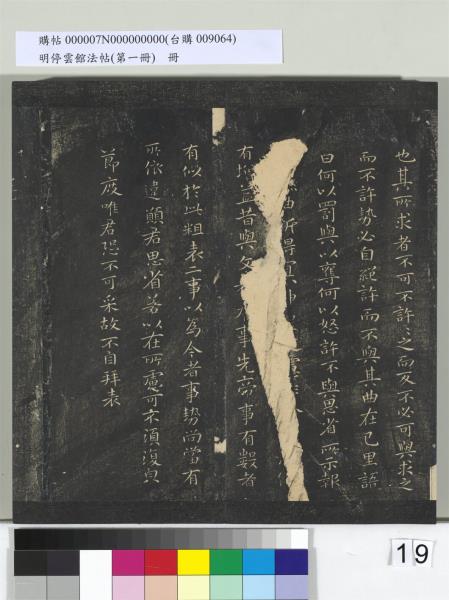 購帖 000007N000000000(台購 009064)
明停雲館法帖(第一冊) 冊
也其所求者不可不許〻之而反不必可與求之
而不許勢必自絕許而不與其曲在己里語
曰何以罰與以奪何以怒許不與思省所示報
曲折得宜神
有增益昔與文事先帝事有數者
有似於此粗表二事以為今者事勢尚當有
所依違願君思省若以在所慮可不須復貞
節度唯君恐不可采故不自拜表
19